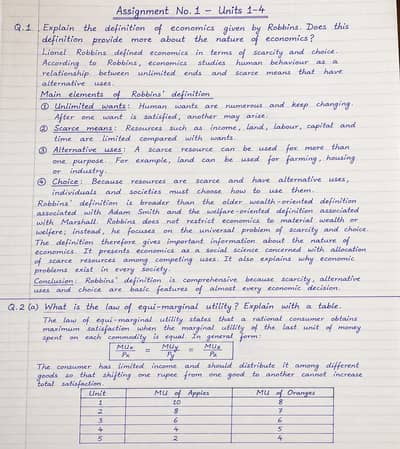 Assignment No. 1 – Units 1-4
Q.1 Explain the definition of economics given by Robbins. Does this
definition provide more about the nature of economics?
Lionel Robbins defined economics in terms of scarcity and choice.
According to Robbins, economics studies human behaviour as a
relationship between unlimited ends and scarce means that have
alternative uses.
Main elements of Robbins' definition
① Unlimited wants: Human wants are numerous and keep changing.
After one want is satisfied, another may arise.
② Scarce means: Resources such as income, land, labour, capital and
time are limited compared with wants.
③ Alternative uses: A scarce resource can be used for more than
one purpose. For example, land can be used for farming, housing
or industry.
④ Choice: Because resources are scarce and have alternative uses,
individuals and societies must choose how to use them.
Robbins' definition is broader than the older wealth-oriented definition
associated with Adam Smith and the welfare-oriented definition associated
with Marshall. Robbins does not restrict economics to material wealth or
welfare; instead, he focuses on the universal problem of scarcity and choice.
The definition therefore gives important information about the nature of
economics. It presents economics as a social science concerned with allocation
of scarce resources among competing uses. It also explains why economic
problems exist in every society.
Conclusion: Robbins' definition is comprehensive because scarcity, alternative
uses and choice are basic features of almost every economic decision.
Q.2 (a) What is the law of equi-marginal utility? Explain with a table.
The law of equi-marginal utility states that a rational consumer obtains
maximum satisfaction when the marginal utility of the last unit of money
spent on each commodity is equal. In general form:
MUx/Px = MUy/Py = MUz/Pz
The consumer has limited income and should distribute it among different
goods so that shifting one rupee from one good to another cannot increase
total satisfaction.
Unit MU of Apples MU of Oranges
1 10 8
2 8 7
3 6 6
4 4 5
5 2 4